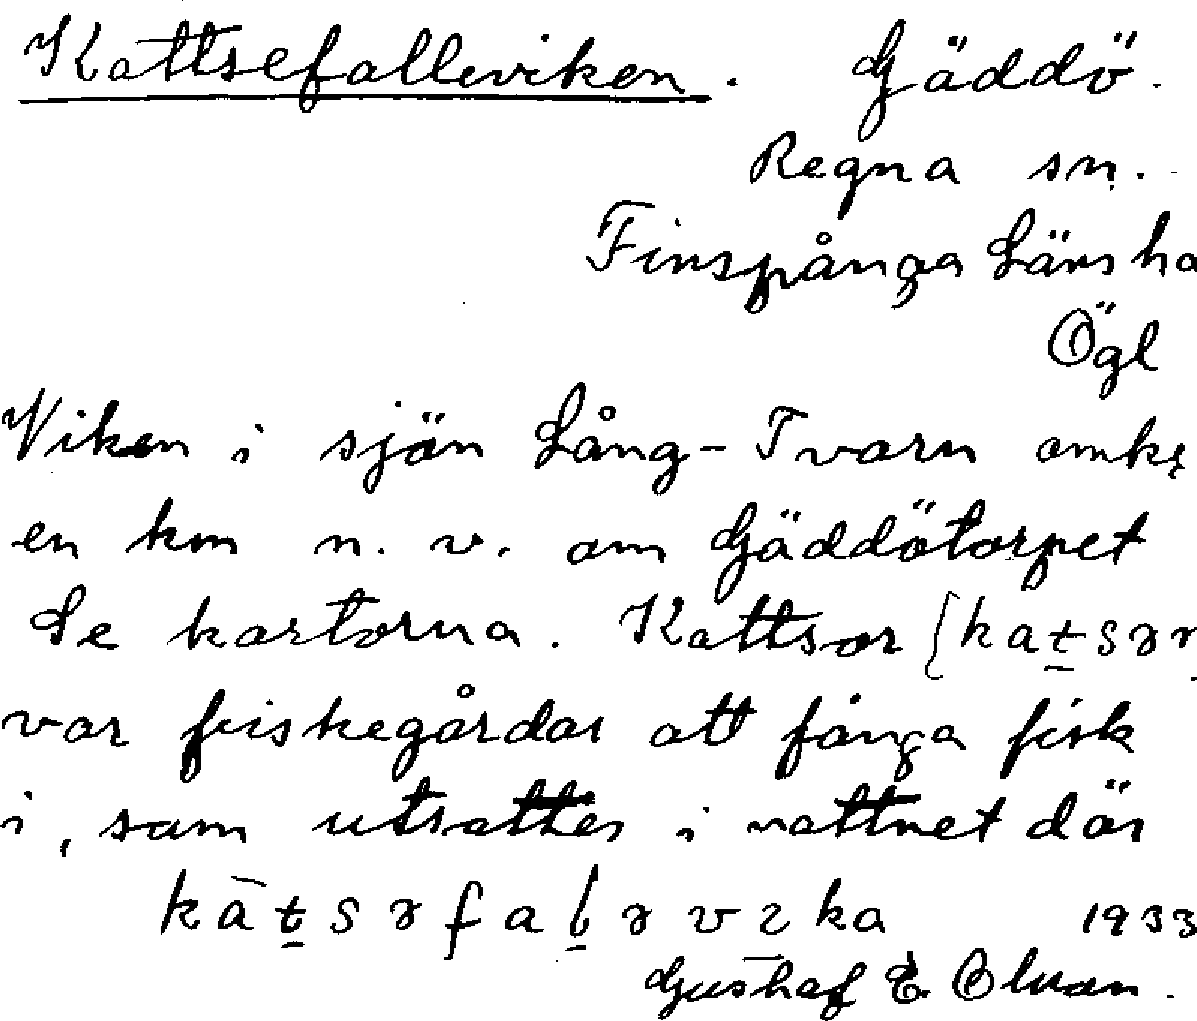 Kattsefalleviken. Gäddö.
Regna sn.
Finspånga Läns ha
Ögl
Viken i sjön Lång-Tvarn omkr
en km n. v. om Gäddötorpet
Se kartorna. Kattsor [kat̲sər
var fiskegårdar att fånga fisk
i, som utsattes i vattnet där
kāt̲səfal̲əvıka 1933
Gustaf E. Ölman.